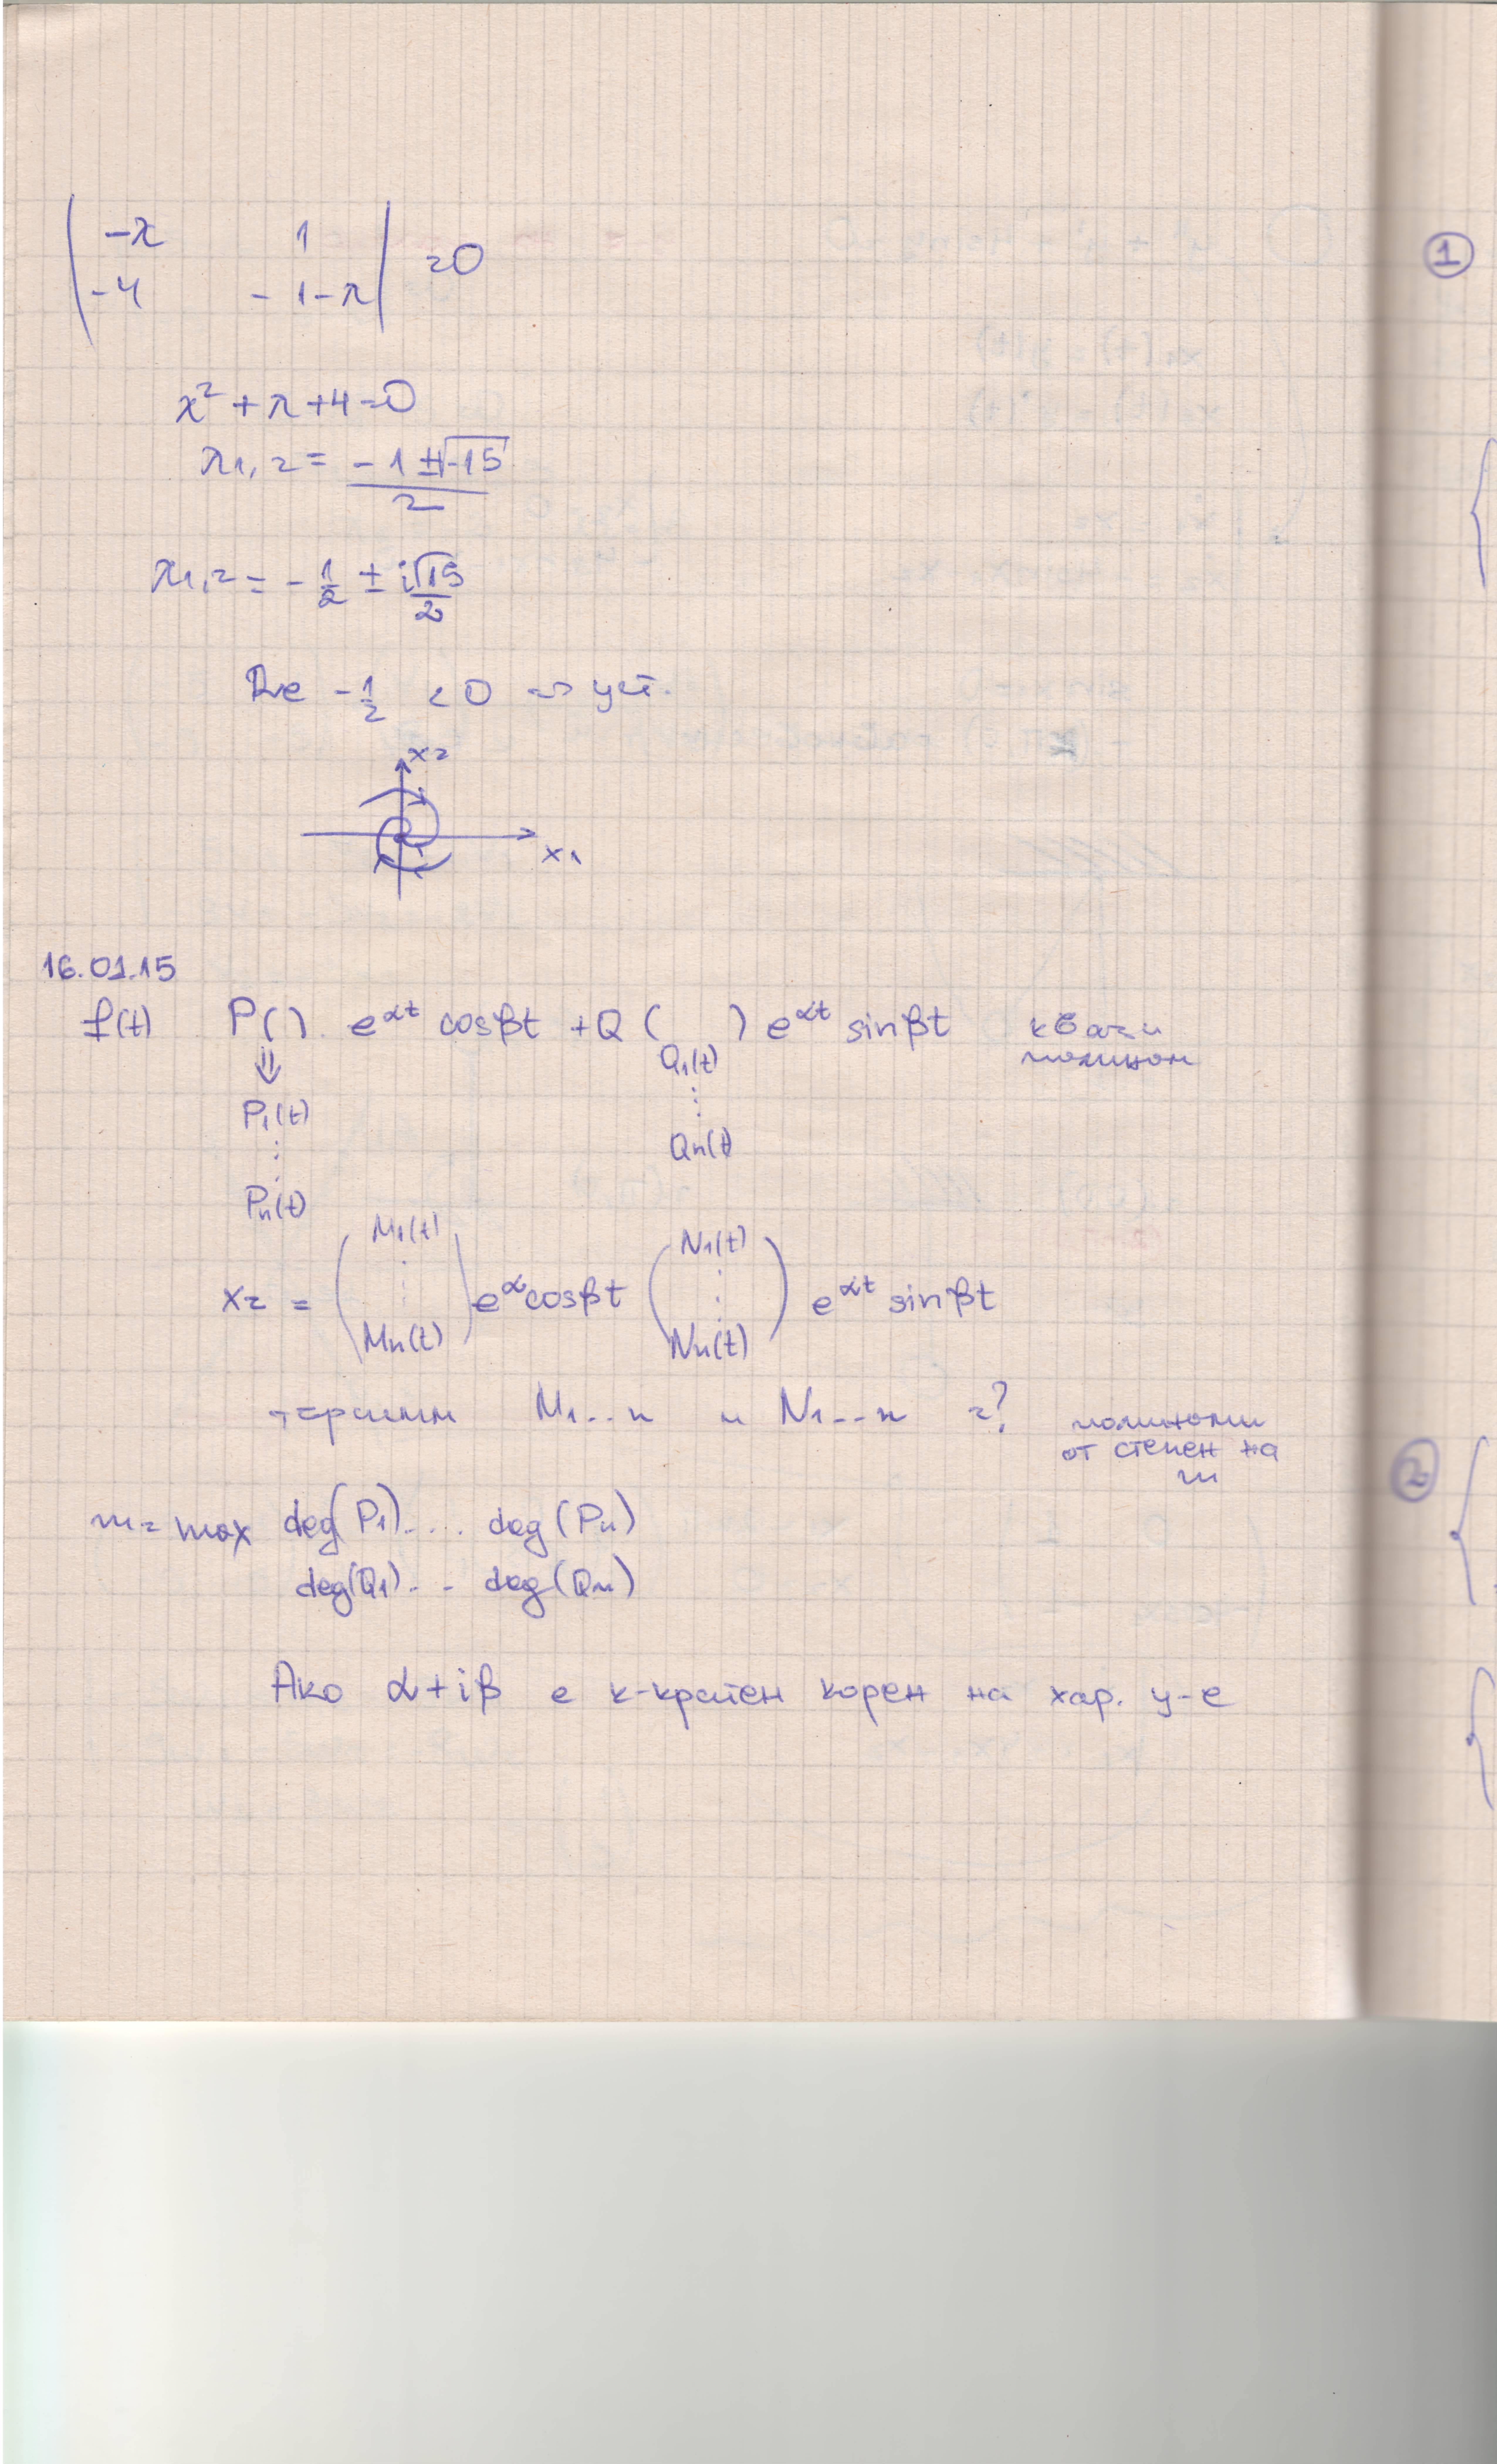 | -λ 1 |
| -4 -1-λ | =0
λ² + λ + 4 = 0
λ1,2 = (-1 ± √-15) / 2
λ1,2 = -1/2 ± i√15/2
Re -1/2 < 0 => уст.
x2
x1
16.01.15
f(t) P( ) e^αt cosβt + Q ( ) e^αt sinβt квази
полином
⇓ Q1(t)
P1(t) ⋮
⋮ Qn(t)
Pn(t)
M1(t) N1(t)
xz = ( ⋮ ) e^α cosβt ( ⋮ ) e^αt sinβt
Mn(t) Nn(t)
търсим M1..n и N1..n =? полиноми
от степен на
m
m = max deg(P1).... deg(Pn)
deg(Q1)... deg(Qn)
Ако α+iβ е к-кратен корен на хар. у-е
1
2